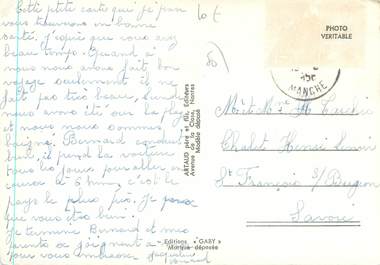 Cette petite carte qui je pense
vous trouvera en bonne
santé. J'espère que vous avez
beau temps. Quand à
nous nous avons fait bon
voyage seulement il ne
fait pas très beau, lundi
nous avons été sur la plage
et nous nous sommes
baigné. Bernard conduit
bien, il prend la voiture
tous les jours pour aller en
course à 6 km, c'est le
pays le plus près. Je pense
que vous êtes bien.
Je termine Bernard et mes
parents se joignent à
pour vous embrasser Jacqueline
Bernard
10f
80
PHOTO
VERITABLE
MANCHE
ARTAUD père et fils, Editeurs
Avenue de la Close, Nantes
Modèle déposé
Editions "GABY"
Marque déposée
Mr et Mme
Chalet Henri
St François s/
Savoie